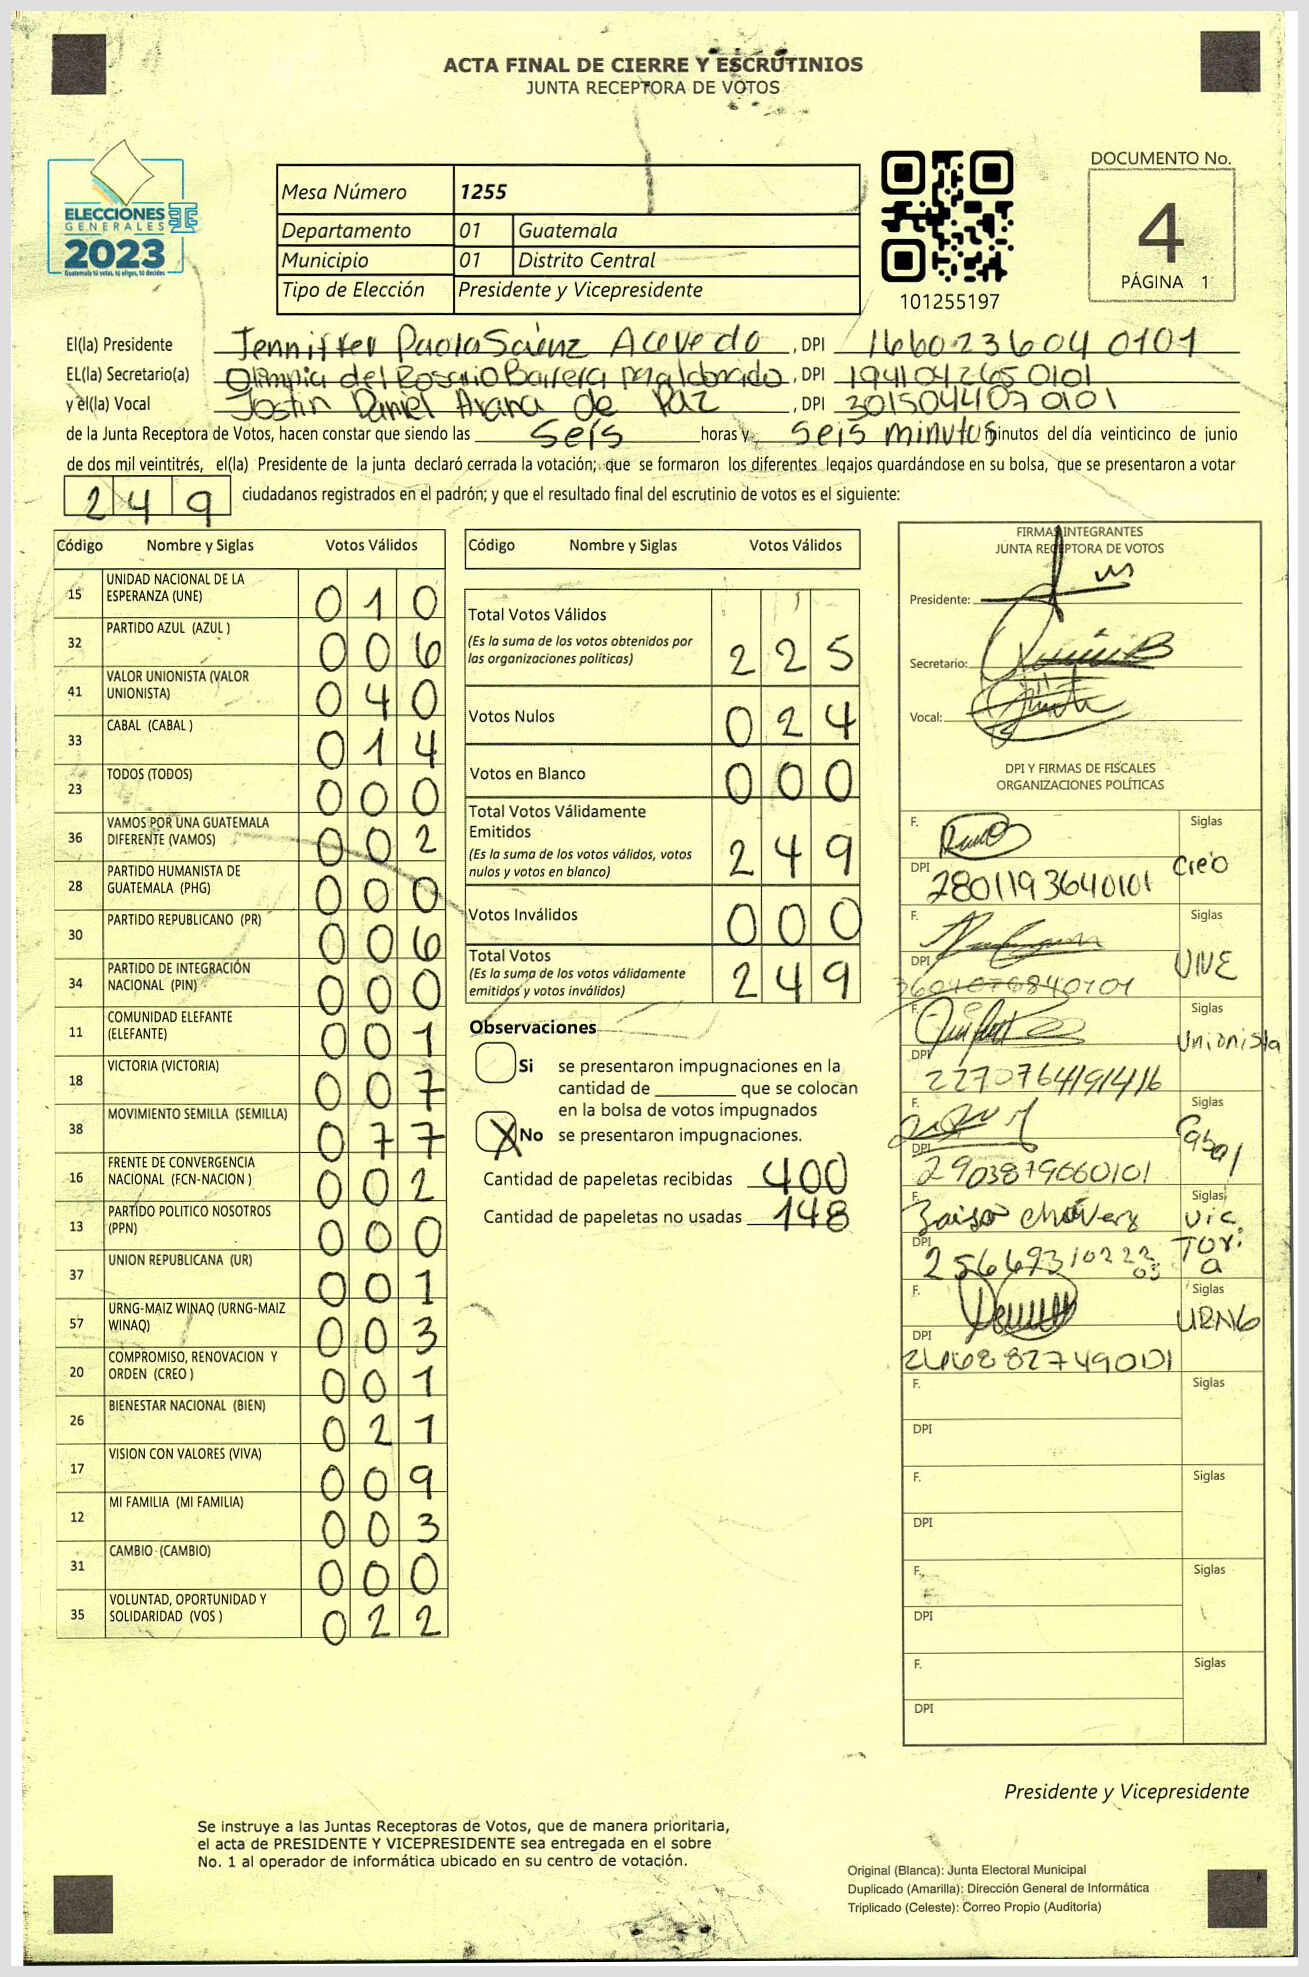 ACTA FINAL DE CIERRE Y ESCRUTINIOS
JUNTA RECEPTORA DE VOTOS
ELECCIONES
GENERALES
2023
Guatemala tú votas, tú eliges, tú decides
Mesa Número 1255
Departamento 01 Guatemala
Municipio 01 Distrito Central
Tipo de Elección Presidente y Vicepresidente
101255197
DOCUMENTO No.
4
PÁGINA 1
El(la) Presidente Jenniffer Paola Sáenz Acevedo, DPI 1660236040101
EL(la) Secretario(a) Olimpia del Rosario Barrera maldonado, DPI 1941042650101
y el(la) Vocal Jostin Daniel Arana de Paz, DPI 3015044070101
de la Junta Receptora de Votos, hacen constar que siendo las seis horas y seis minutos minutos del día veinticinco de junio
de dos mil veintitrés, el(la) Presidente de la junta declaró cerrada la votación; que se formaron los diferentes legajos guardándose en su bolsa, que se presentaron a votar
249 ciudadanos registrados en el padrón; y que el resultado final del escrutinio de votos es el siguiente:
Código Nombre y Siglas Votos Válidos
15 UNIDAD NACIONAL DE LA ESPERANZA (UNE) 010
32 PARTIDO AZUL (AZUL ) 006
41 VALOR UNIONISTA (VALOR UNIONISTA) 040
33 CABAL (CABAL ) 014
23 TODOS (TODOS) 000
36 VAMOS POR UNA GUATEMALA DIFERENTE (VAMOS) 002
28 PARTIDO HUMANISTA DE GUATEMALA (PHG) 000
30 PARTIDO REPUBLICANO (PR) 006
34 PARTIDO DE INTEGRACIÓN NACIONAL (PIN) 000
11 COMUNIDAD ELEFANTE (ELEFANTE) 001
18 VICTORIA (VICTORIA) 007
38 MOVIMIENTO SEMILLA (SEMILLA) 077
16 FRENTE DE CONVERGENCIA NACIONAL (FCN-NACION ) 002
13 PARTIDO POLITICO NOSOTROS (PPN) 000
37 UNION REPUBLICANA (UR) 001
57 URNG-MAIZ WINAQ (URNG-MAIZ WINAQ) 003
20 COMPROMISO, RENOVACION Y ORDEN (CREO ) 001
26 BIENESTAR NACIONAL (BIEN) 021
17 VISION CON VALORES (VIVA) 009
12 MI FAMILIA (MI FAMILIA) 003
31 CAMBIO (CAMBIO) 000
35 VOLUNTAD, OPORTUNIDAD Y SOLIDARIDAD (VOS ) 022
Código Nombre y Siglas Votos Válidos
Total Votos Válidos 225
(Es la suma de los votos obtenidos por
las organizaciones políticas)
Votos Nulos 024
Votos en Blanco 000
Total Votos Válidamente
Emitidos 249
(Es la suma de los votos válidos, votos
nulos y votos en blanco)
Votos Inválidos 000
Total Votos 249
(Es la suma de los votos válidamente
emitidos y votos inválidos)
Observaciones
Si se presentaron impugnaciones en la
cantidad de ________ que se colocan
en la bolsa de votos impugnados
X No se presentaron impugnaciones.
Cantidad de papeletas recibidas 400
Cantidad de papeletas no usadas 148
FIRMAS INTEGRANTES
JUNTA RECEPTORA DE VOTOS
Presidente:
Secretario:
Vocal:
DPI Y FIRMAS DE FISCALES
ORGANIZACIONES POLÍTICAS
F. Siglas
creo
DPI 2801193640101
F. Siglas
UNE
DPI
F. Siglas
Unionista
DPI 2270764191416
F. Siglas
Cabal
DPI 2903879660101
F. Siglas
Victoria
DPI
F. Siglas
URNG
DPI
F. Siglas
DPI
F. Siglas
DPI
F. Siglas
DPI
F. Siglas
DPI
Presidente y Vicepresidente
Se instruye a las Juntas Receptoras de Votos, que de manera prioritaria,
el acta de PRESIDENTE Y VICEPRESIDENTE sea entregada en el sobre
No. 1 al operador de informática ubicado en su centro de votación.
Original (Blanca): Junta Electoral Municipal
Duplicado (Amarilla): Dirección General de Informática
Triplicado (Celeste): Correo Propio (Auditoría)